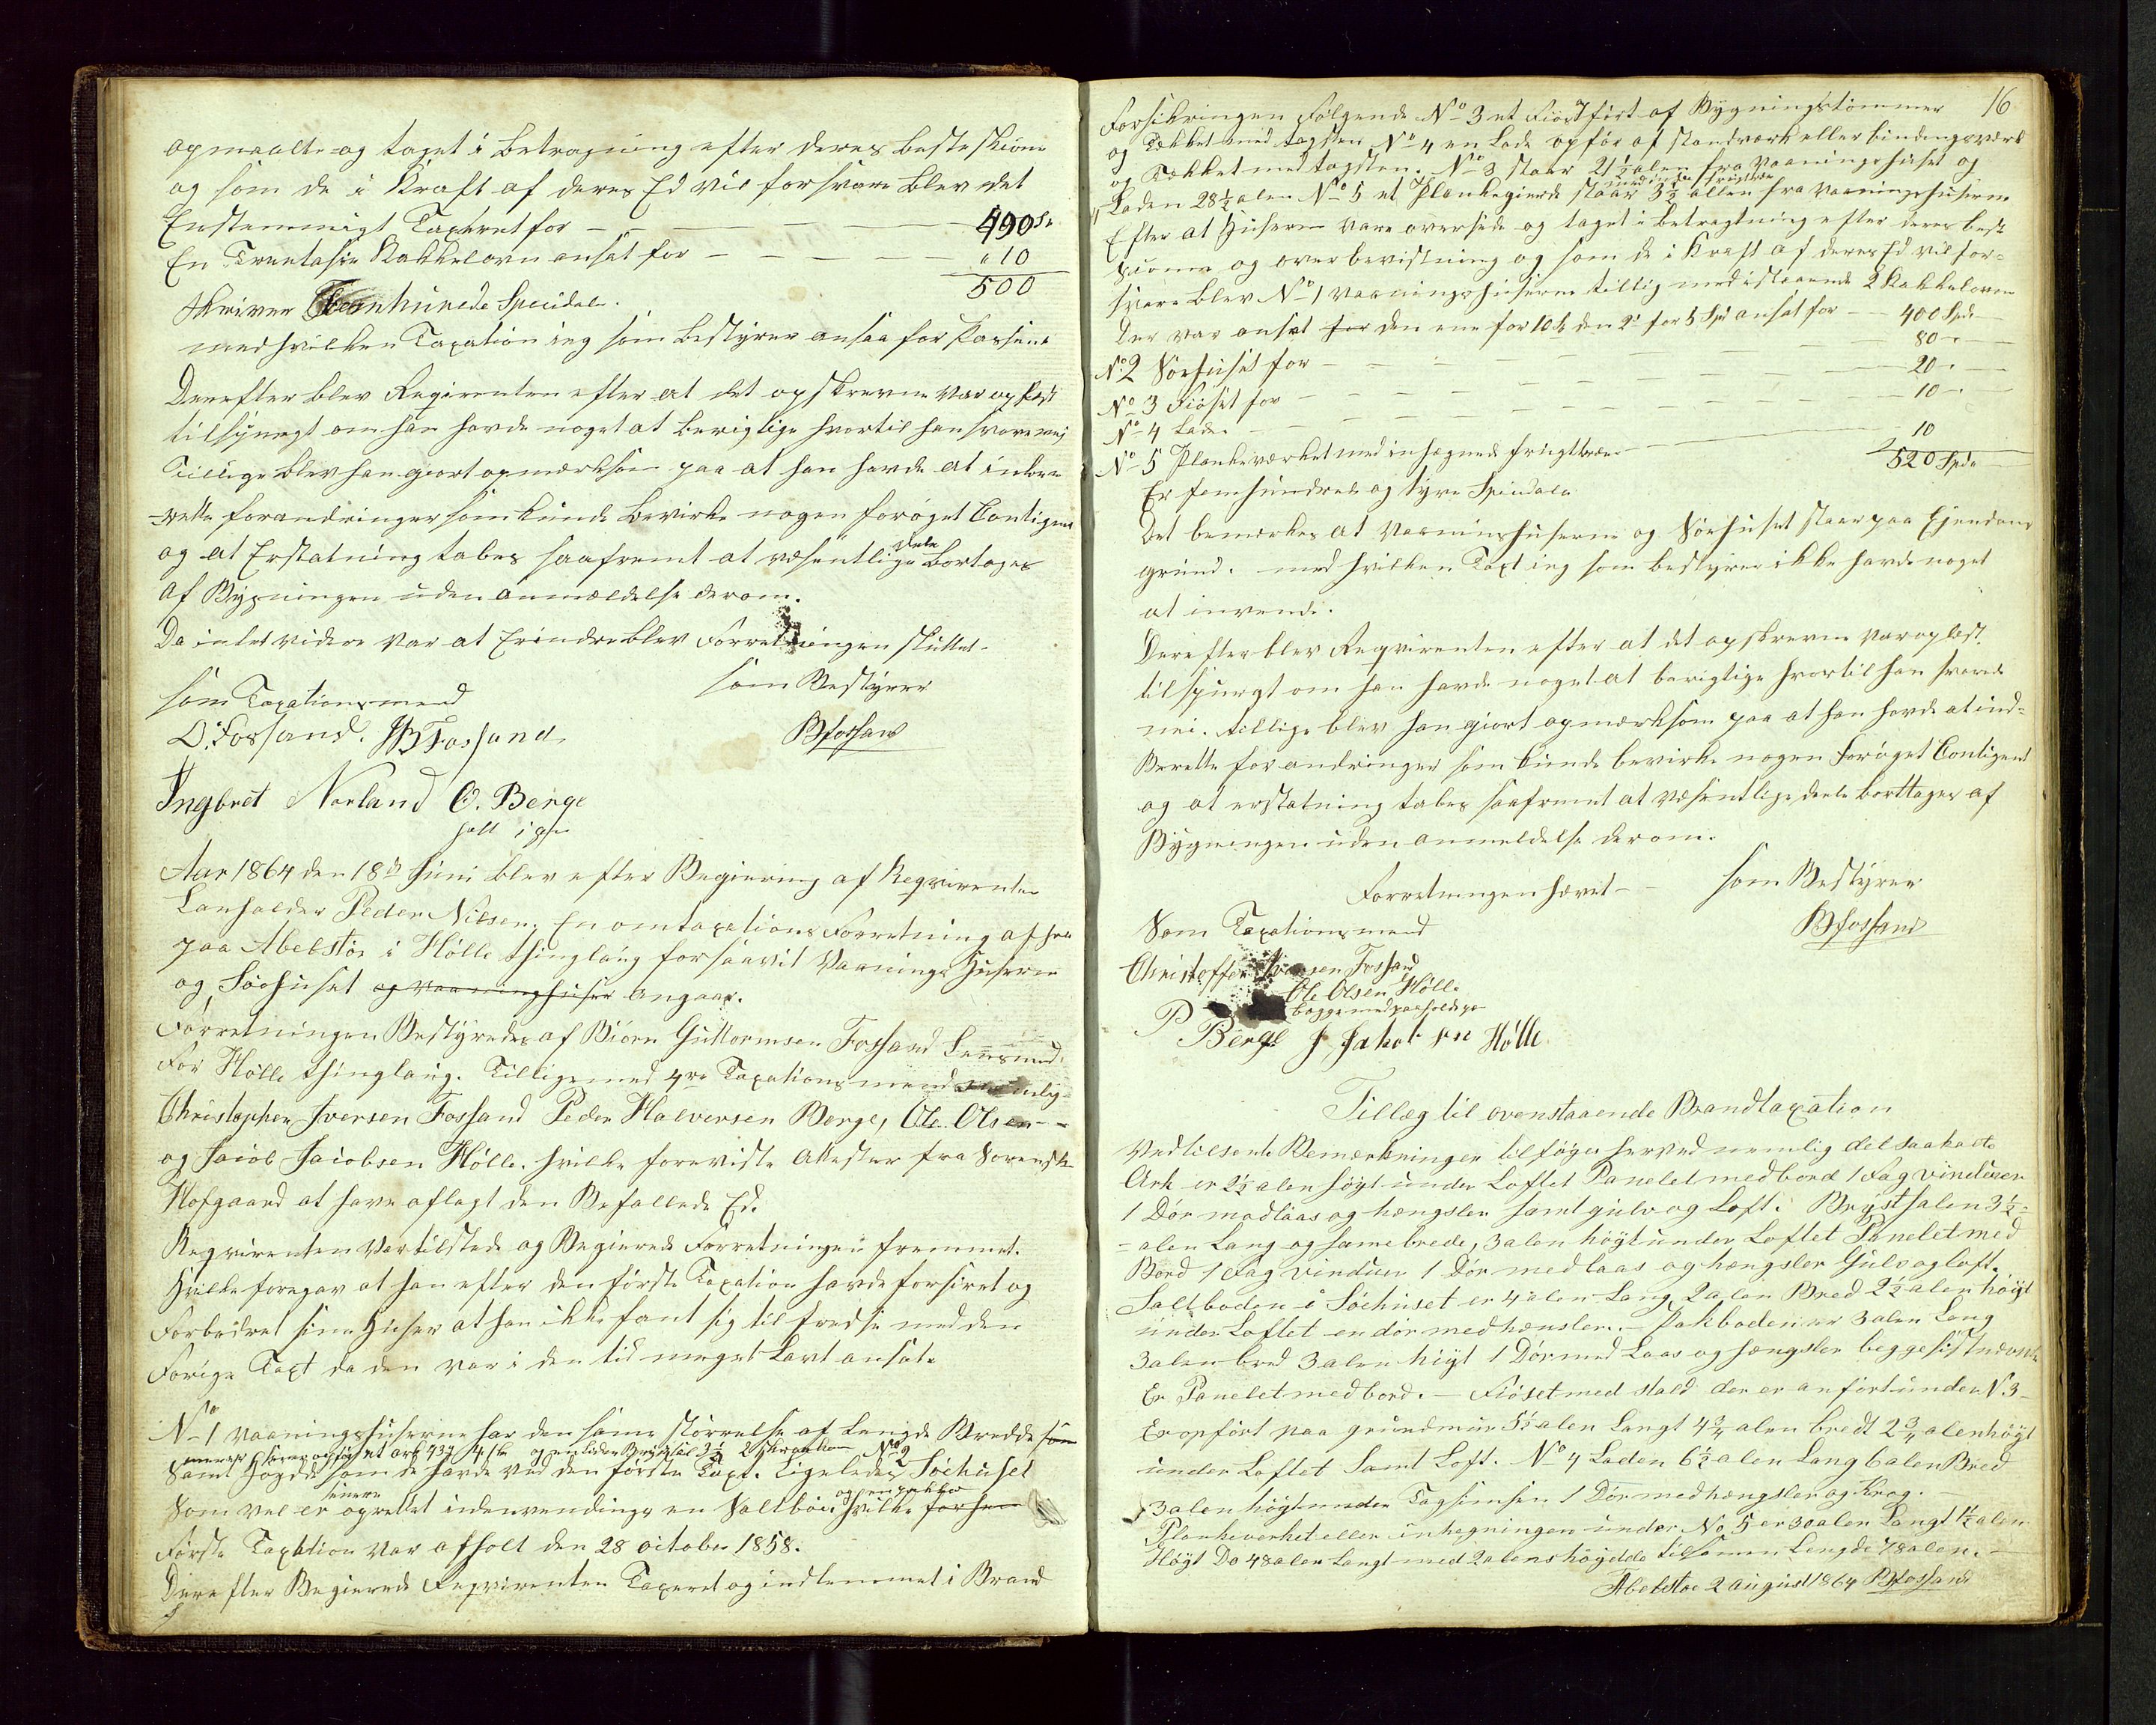 opmaalte og taget i Betragning efter deres beste skiøn
og som de i Kraft af deres Ed vil forsvare blev det
Enstemmigt Taxeret for — — — 490 Sp
En Treetasies Kakkelovn ansat for — — — " 10
500
skriver Femhunrede Specidaler.
med hvilken Taxation jeg som bestyrer ansaa for Passende
Derefter blev Reqvirenten efter at det opskrevne var oplæst
tilspurgt om han havde noget at berigtige hvortil han svarede nei
Tillige blev han giort opmærksom paa at han havde at inbe-
rette forandringer som kunde bevirke nogen forøget Contigent
og at Erstatning tabes saafremt at væsentlige Dele bortages
af Bygningen uden anmældelse derom.
Da intet videre var at Erindre blev Forretningen sluttet.
som Taxationsmænd som Bestyrer
O. Fossand. B Fossand BFossand
Ingbret Norland O. Berge
Aar 1864 den 18de Juni blev efter Begiering af Reqvirenten
Peder Nilsen. En omtaxations Forretning af
paa Abelstøe i Hølle thinglaug forsaavit Vaanings Huserne
og Søehuset og Vaaninghuser angaar.
Forretningen Bestyredes af Biørn Guttormsen Fossand Lensmand
for Hølle thinglaug. Tilligemed 4re Taxationsmænd nemlig
Christopher Iversen Fossand Peder Halversen Berge, Ole Olsen
og Jacob Jacobsen Hølle. hvilke foreviste Attester fra Sorensk.
Hofgaard at have aflagt den Befallede Ed.
Reqvirenten Var tilstede og Begierede Forretningen fremmet.
Hvilke foregav at han efter den første Taxation havde forsiret og
Forbedret sine Huser at han ikke fant sig tilfredse med den
Forige Taxt da den var i den tid meget Lavt ansat.
No 1 vaaningshuserne har den same størrelse af Lengde Bredde som
samt Høgde som de havde ved den første Taxt. Ligeledes No 2 Søehuset
Som vel er oprettet indvendings en Saltboe og en pakboe hvilke
Første Taxation var afholt den 28 october 1858.
Derefter Begierede Reqvirenten Taxeret og indlemmet i Brand
16
Forsikringen Følgende No 3 et Fiøs opført af Bygningstømmer
og Tækket med tagsten No 4 en Lade opført af standværk eller bindingsværk
og Tækket med tagsten. No 3 staar 21½ alen fra Vaaningshuset og
Laden 28½ alen No 5 et Plankegierde staar 3½ allen fra Vaaningshuserne
Efter at Huserne vare overseede og taget i betragtning efter deres beste
skiønne og overbevistning og som de i Kraft af deres Ed vil for-
svare blev No 1 Vaaningshuserne tillig med istaaende 2 Kakkelovne
Der var ansat for den ene for 10 Sp den 2de for 5 Spd ansat for — 400 Spd
No 2 Søehuset for — — — 80 "
No 3 Fiøset for — — — 20 "
No 4 Lade. — — — 10 "
No 5 Plankeværket med inhægnede frugttræer — 10
520 Spd
Er femhundrede og tyve Specidaler
Det bemerkes at Vaaninshuserne og Søehuset staar paa Ejendoms
grund. med hvilken Taxt jeg som bestyrer ikke havde noget
at invende.
Derefter blev Reqvirenten efter at det opskrevne var oplæst
tilspurgt om han havde noget at berigtige hvortil han svarede
nei. tillige blev han giort opmærksom paa at han havde at ind-
Berette forandringer som kunde bevirke nogen Forøget Contigent
og at erstatning tabes saafremt at væsentlige deele borttages af
Bygningen uden anmeldelse derom.
Forretningen hævet —
Som Taxationsmænd som Bestyrer
BFossand
Christoffer Iversen Fossand
Ole Olsen Hølle
begge med paaholden pen
P Berge J. Jakobsen Hølle
Tillæg til ovenstaaende Brandtaxation
Ved tilsente Bemærkninger tilføyes herved nemlig det saakalte
Ark er 2½ alen høyt under Loftet Panelet med bord 1 Fag vinduer
1 Dør med laas og hængsler samt gulv og Loft. Brystsalen 3½-
alen Lang og same brede, 3 alen høyt under Loftet Panelet med
Bord 1 Fag vinduer 1 Dør med laas og hængsler Gulv og loft.
Saltboden i Søehuset er 4 alen Lang 2 alen Bred 2½ alen høyt
under Loftet en dør med hænsler. — Pakboden er 3 alen Lang
3 alen bred 3 alen høyt 1 Dør med Laas og hængsler begge sistnævnte
Er Panelet med bord. — Fiøset med stald der er anført under N. 3
Er opført paa grundmur 5½ alen Langt 4¾ alen bredt 2¾ alen høyt
under Loftet Samt Loft. No 4 Laden 6½ alen Lang 6 alen Bred
3 alen høyt under Tagsimsen 1 Dør med hængsler og Krog. —
Plankeverket eller inhegningen under No 5 er 30 alen Langt 1½ alen
Høyt Do 48 alen Langt med 2 alens høydde tilsamen Lengde 78 alen. —
Abelstøe 2 August 1864 BFossand